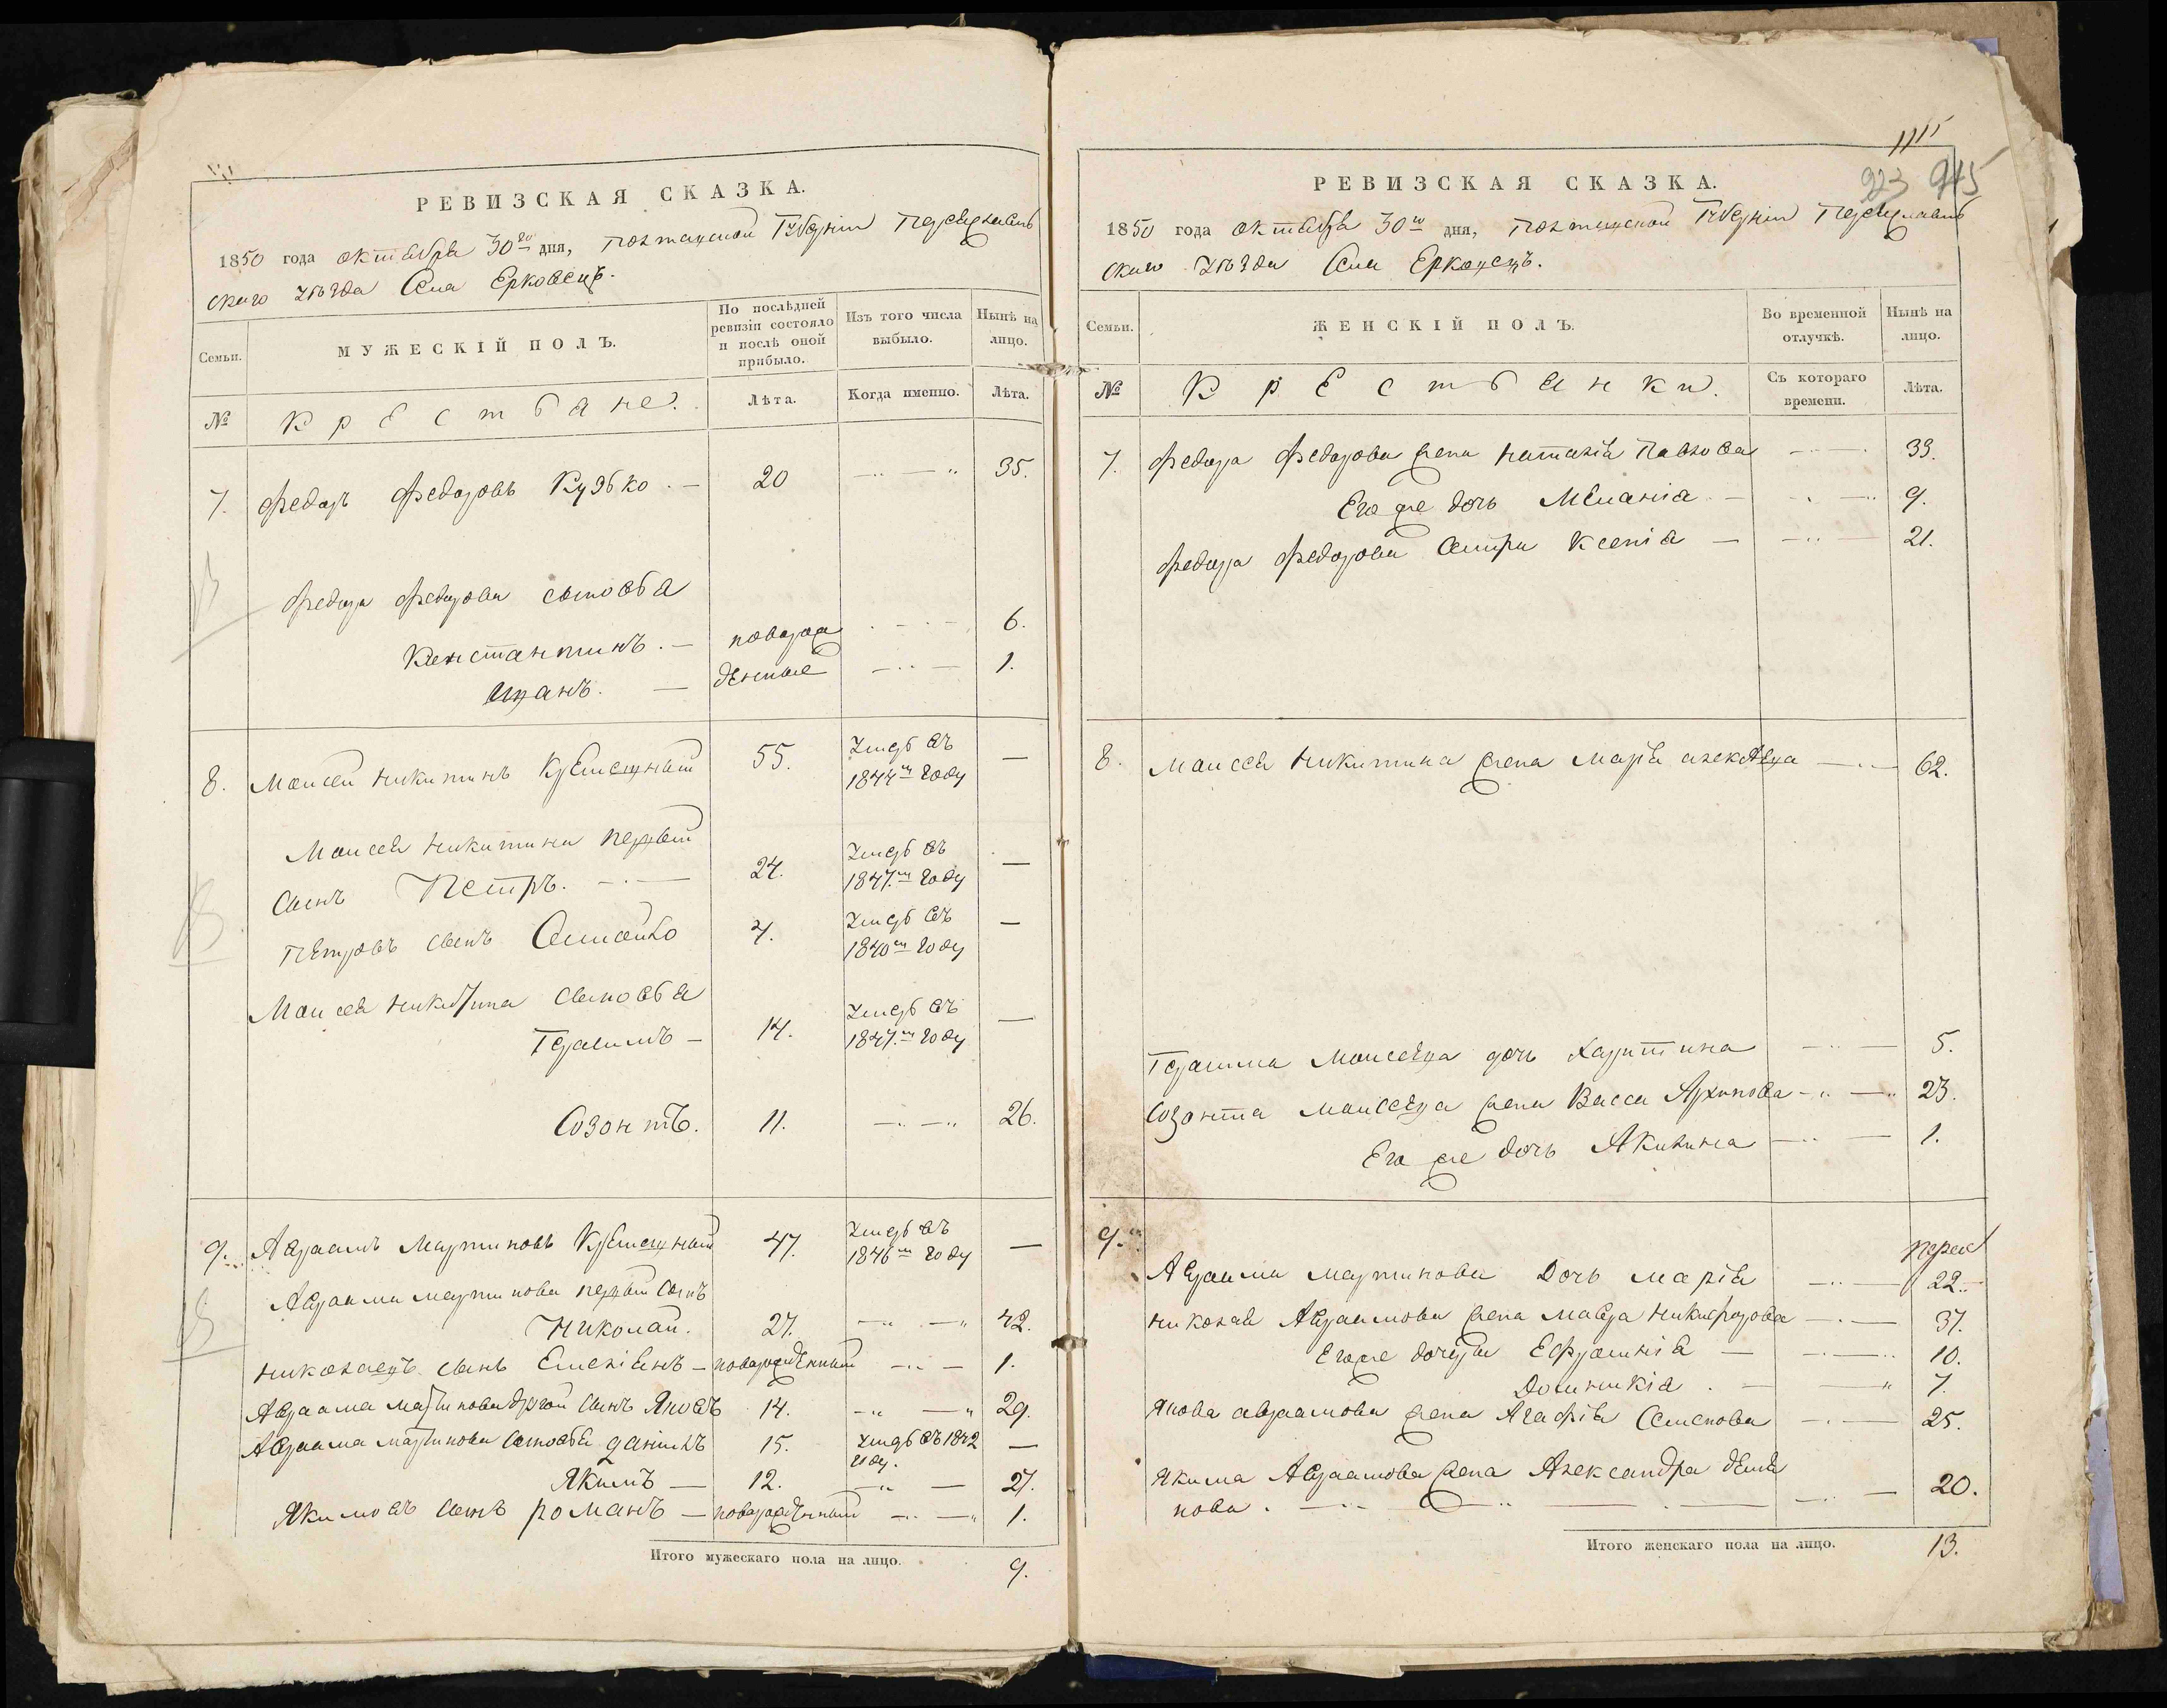 РЕВИЗСКАЯ СКАЗКА.
1850 года октября 30го дня, Полтавской Губерніи Переяслав
скаго уѣзда Села Ерковецъ.
Семьи.
МУЖЕСКІЙ ПОЛЪ.
По послѣдней ревизіи состояло и послѣ оной прибыло.
Изъ того числа выбыло.
Нынѣ на лицо.
№
Крестьяне.
Лѣта.
Когда именно.
Лѣта.
7. Федоръ Федоровъ 20 35.
Федора Федорова сыновья
Константинъ. новорож 6.
Иванъ. денные 1.
8. Моисей Никитинъ 55. Умеръ въ 1844м году —
Моисея Никитина первый
сынъ Петръ. 24. Умеръ въ 1847м году —
Петровъ сынъ 4. Умеръ въ 1840м году —
Моисея Никитина сыновья
Герасимъ — 14. Умеръ въ 1847м году —
Созонтъ. 11. 26.
9. Авраамъ Мартиновъ 47. Умеръ въ 1846м году —
Авраама Мартинова первый сынъ
Николай. 27. 42.
Николаевъ сынъ Емеліянъ — новорожденный 1.
Авраама Мартинова другой сынъ Яковъ 14. 29.
Авраама Мартинова сыновья Данило 15. Умеръ въ 1842 году. —
Якимъ — 12. 27.
Якимовъ сынъ Романъ — новорожденный 1.
Итого мужескаго пола на лицо. 9.
1115
923 945
РЕВИЗСКАЯ СКАЗКА.
1850 года октября 30го дня, Полтавской Губерніи Переяслав
скаго уѣзда Села Ерковецъ.
Семьи.
ЖЕНСКІЙ ПОЛЪ.
Во временной отлучкѣ.
Нынѣ на лицо.
№
Крестьянки.
Съ котораго времени.
Лѣта.
7. Федора Федорова жена Наталія Павлова 33.
Его же дочь Меланія 9.
Федора Федорова сестра Ксенія — 21.
8. Моисея Никитина жена Марія 62.
Герасима Моисеева дочь Харитина 5.
Созонта Моисеева жена Васса Архипова 23.
Его же дочь Акилина 1.
9.
Авраама Мартинова дочь Марія 22.
Николая Авраамова жена Мавра Никифорова 37.
Его же дочери Ефросинія — 10.
Домникія. 7.
Якова Авраамова жена Агафія Семенова 25.
Якима Авраамова жена Александра Демя
нова. 20.
Итого женскаго пола на лицо. 13.